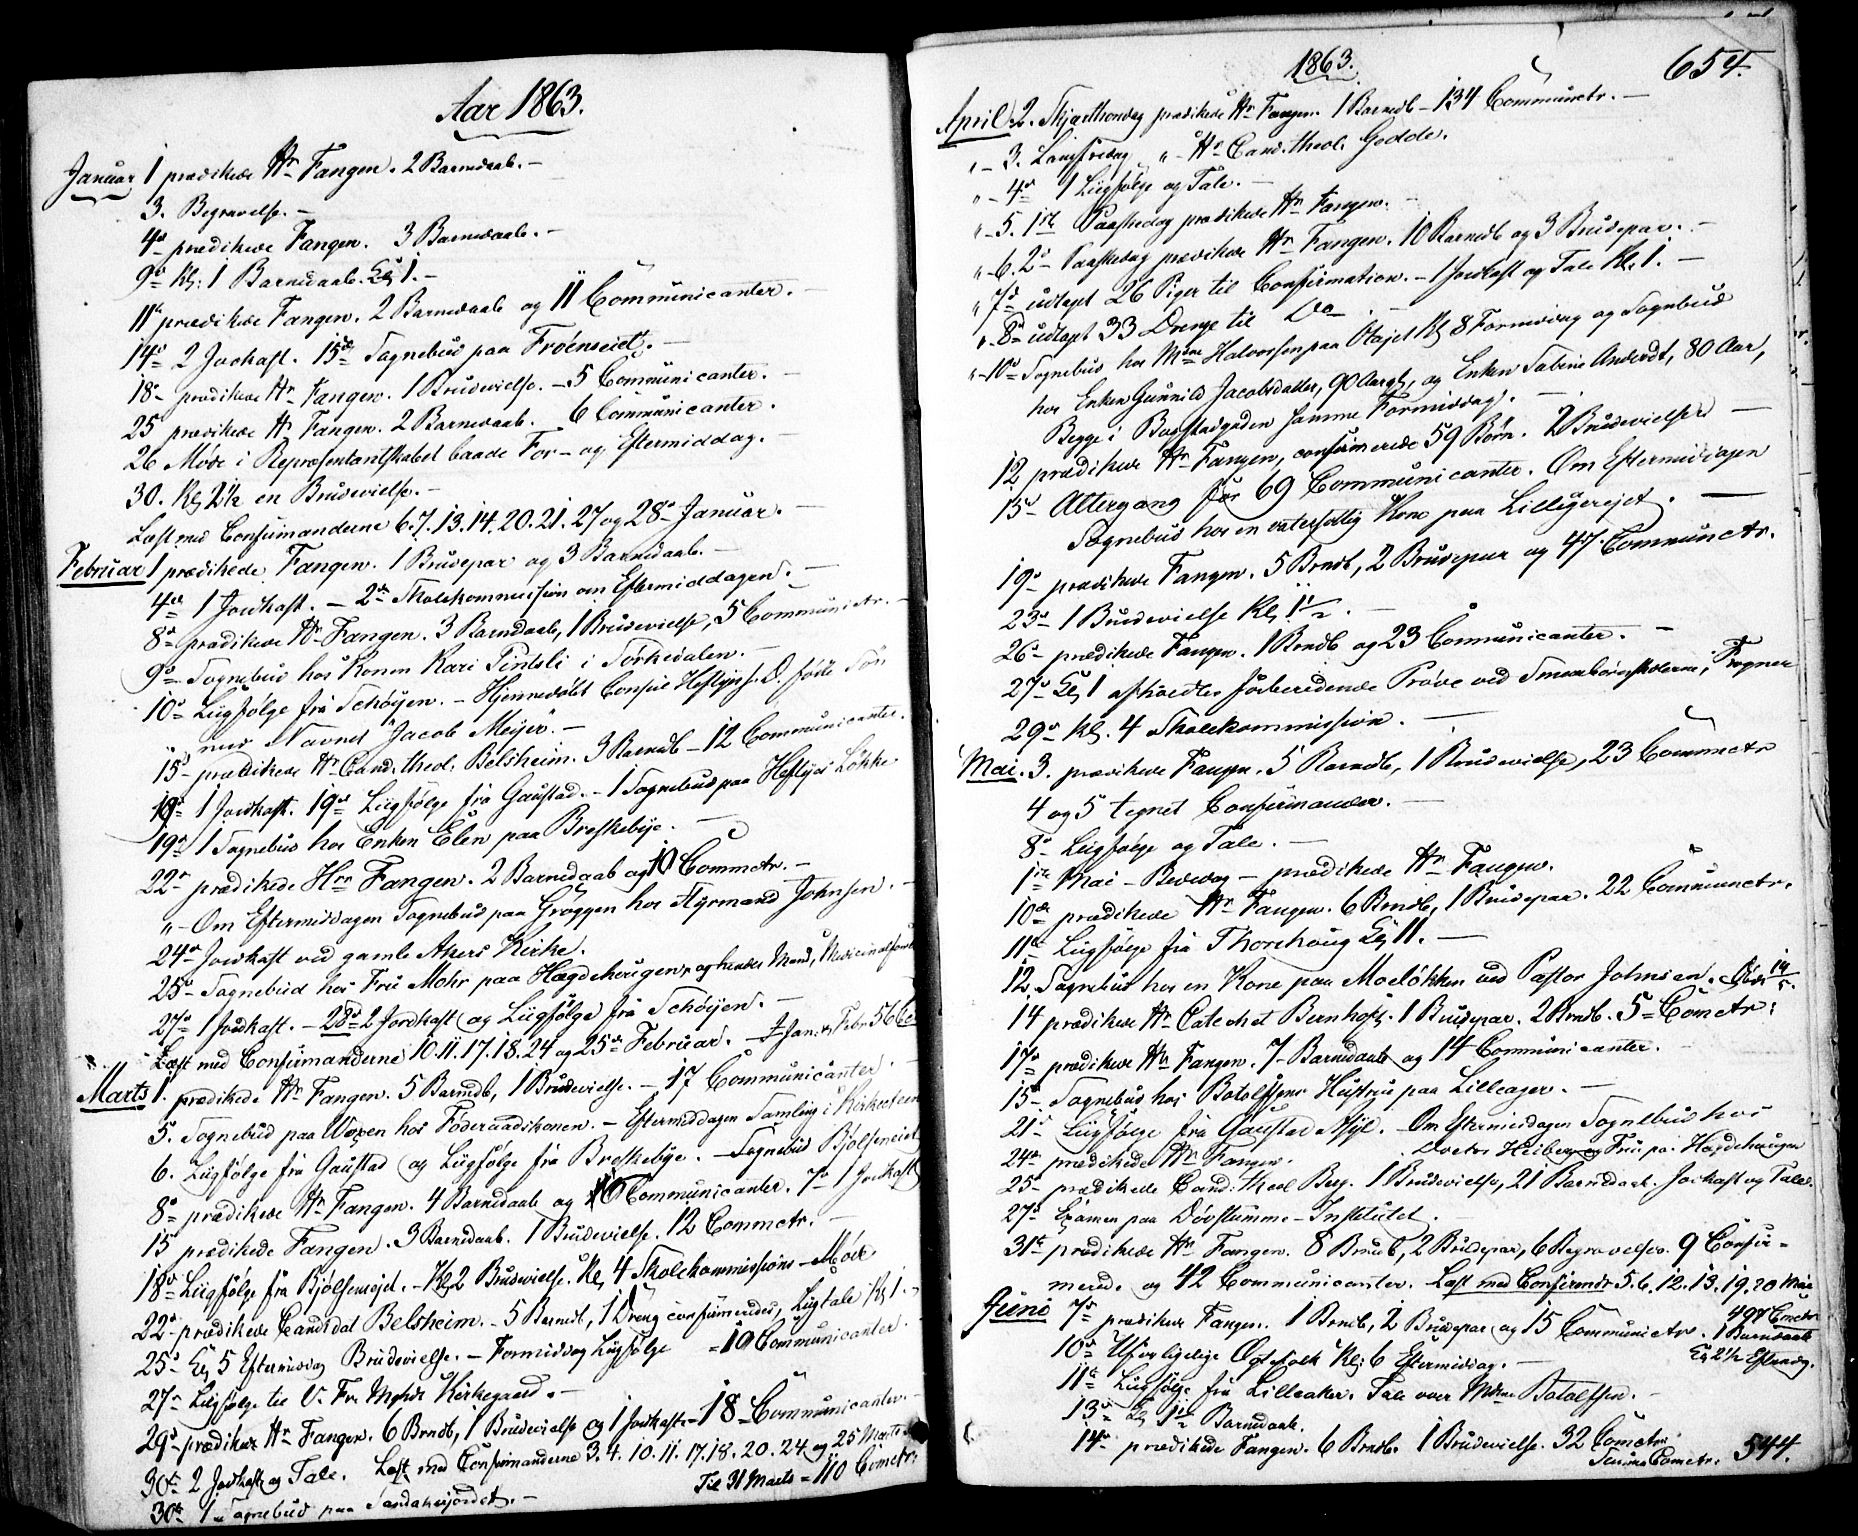 Aar 1863.
Januar 1 prædikede Hr Fangen. 2 Barnedaab. —
3. Begravelse. —
4de prædikede Fangen. 3 Barnedaab. —
9de Kl: 1 Barnedaab. Kl 1. —
11te prædikede Fangen. 2 Barnedaab og 11 Communicanter. —
14de 2 Jordkast. 15de Sognebud paa Frøenseiet. —
18de prædikede Hr Fangen. 1 Brudevielse. — 5 Communicanter. —
25 prædikede Hr Fangen. 2 Barnedaab. 6 Communicanter.
26 Møde i Repræsentantskabet baade For- og Eftermiddag. —
30. Kl 2½ en Brudevielse. —
Læst med Confirmanderne 6. 7. 13. 14. 20. 21. 27 og 28de Januar. —
Februar 1 prædikede Fangen. 1 Brudepar og 3 Barnedaab. —
4de 1 Jordkast. — 2de Skolekommission om Eftermiddagen. —
8de prædikede Hr Fangen. 3 Barndaab, 1 Brudevielse, 5 Communictr. —
9de Sognebud hos Konen Kari Pintsli i Sørkedalen. —
10de Liigfølge fra Schøyen. — Hjemmedøbt Consul Heftyes f. D. fødte Søn
med Navnet "Jacob Meyer". —
15de prædikede Hr Cand. theol. Belsheim. 3 Barndb — 12 Communicanter.
18de 1 Jordkast. 19de Liigfølge fra Gaustad. — 1 Sognebud paa Heftyes Løkke.
19de 1 Sognebud hos Enken Elen paa Breskebye. —
22de prædikede Hrr Fangen. 2 Barnedaab og 10 Commctr. —
" — Om Eftermiddagen Sognebud paa Grøggen hos Styrmand Johnsen. —
24de Jordkast ved gamle Akers Kirke.
25de Sognebud hos Fru Mohr paa Hægdehaugen, og hendes Mand,
27de 1 Jordkast. — 28de 2 Jordkast og Liigfølge fra Schøyen. —
Læst med Confirmanderne 10. 11. 17. 18. 24 og 25de Februar. — I Jan. & Febr. 56
Marts 1. prædikede Hr Fangen. 5 Barndb, 1 Brudevielse. — 17 Communicanter.
5. Sognebud paa Woxen hos Føderaadskonen. — Eftermiddagen Samling i
6. Liigfølge fra Gaustad og Liigfølge fra Breskebye. — Sognebud Bjølseneiet
8de prædikede Hr Fangen. 4 Barnedaab og 10 Communicanter. 7de 1 Jordkast
15de prædikede Fangen. 3 Barnedaab. 1 Brudevielse. 12 Commctr. —
18de Liigfølge fra Bjølseneiet. — Kl 2 Brudevielse. Kl 4 Skolekommissions-Møde
22de prædikede Candidat Belsheim. — 5 Barndb, 1 Dreng confirmeredes, Liigtale Kl 1. —
25de Kl 5 Eftermiddag Brudevielse. — Formiddag Liigfølge = 19 Communicanter.
27de Liigfølge til V. Fr. Kirkegaard. —
29de prædikede Hr Fangen. 6 Brndb, 1 Brudevielse og 1 Jordkast — 18 Communicanter.
30te 2 Jordkast og Tale. Læst med Confirmanderne 3. 4. 10. 11. 17. 18. 20. 24 og 25 Marts
30te 1 Sognebud paa
Til 31 Marts = 110 Comctr.
1863.
654.
April 2. Skjærthorsdag prædikede Hr Fangen. 1 Barndb — 134 Communctr. —
" — 3. Langfredag " — Hr Cand. theol. Godde.
" — 4de 1 Liigfølge og Tale. —
" — 5. 1ste Paaskedag prædikede Hr Fangen. —
" — 6. 2de Paaskedag prædikede Hr Fangen. 10 Barndb og 3 Brudepar. —
" 7de udtaget 26 Piger til Confirmation. — 1 Jordkast og Tale Kl. 1. —
" — 8de udtaget 33 Drenge til Do. —
" — 10de Sognebud hos Mdme Halvorsen paa Kl 8 Formiddag og Sognebud
hos Enken Gunnild Jacobsdatter, 90 Aargl, og Enken Sabine 80 Aar,
Begge i Bogstadgaden samme Formiddag. —
12 prædikede Hr Fangen, confirmerede 59 Børn. 2 Brudevielser —
15de Altergang for 69 Communicanter. Om Eftermiddagen
Sognebud hos en vatersottig Kone paa Lilligereiet. —
19de prædikede Fangen. 5 Brndb, 2 Brudepar og 47 Communctr.
23de 1 Brudevielse Kl 1½. —
26de prædikede Fangen. 1 Brndb og 23 Communicanter. —
27de Kl 1 afholdtes forberedende Prøve ved Smaabørnskolerne i Frogner
29de Kl. 4 Skolekommission. —
Mai. 3. prædikede Fangen. 5 Barndb, 1 Brudevielse, 23 Commctr
4 og 5 tegnet Confirmander. —
8de Liigfølge og Tale. —
1ste Mai — Bededag — prædikede Hr Fangen.
10de prædikede Hr Fangen. 6 Brndb, 1 Brudepar. 22 Communctr.
11te Liigfølge fra Thorshoug Kl 11. —
12 Sognebud hos en Kone paa Moeløkken ved Pastor Johnsen. Døde 14/5.
14 prædikede Hr Catechet Bernhoft. 1 Brudepar. 2 Brndb. 5 = Comctr.
17de prædikede Hr Fangen. 7 Barnedaab og 14 Communicanter. —
15de Sognebud hos Botolfsens Hustru paa Lilleager. —
21de Liigfølge fra Gaustad Asyl. — Om Eftermiddagen Sognebud hos
24de prædikede Hr Fangen. Doctor Heiberg og Frue paa Hægdehaugen
25de prædikede Cand. theol Berg. 1 Brudevielse, 21 Barnedaab. Jordkast og Tale.
27de Examen paa Døvstumme-Institutet.
31te prædikede Hr Fangen. 8 Brndb, 2 Brudepar, 6 Begravelser. 9 Confir-
merede og 42 Communicanter. Læst med Confirmdr 5. 6. 12. 13. 19. 20 Mai
Juni 7de prædikede Fangen. 1 Brndb, 2 Brudepar og 15 Communictr. 497 Comctr
10de Uforligelige Ægtefolk Kl: 6 Eftermiddag. — 1 Barnedaab
Kl 2½ Eftmdg.
11te Liigfølge fra Lilleaker. Tale over Mdme Botolfsen. —
13de Kl 1½ Barnedaab.
14de prædikede Fangen. 6 Brndb. 1 Brudevielse. 32 Comctr.
Summa Comctr. 544.